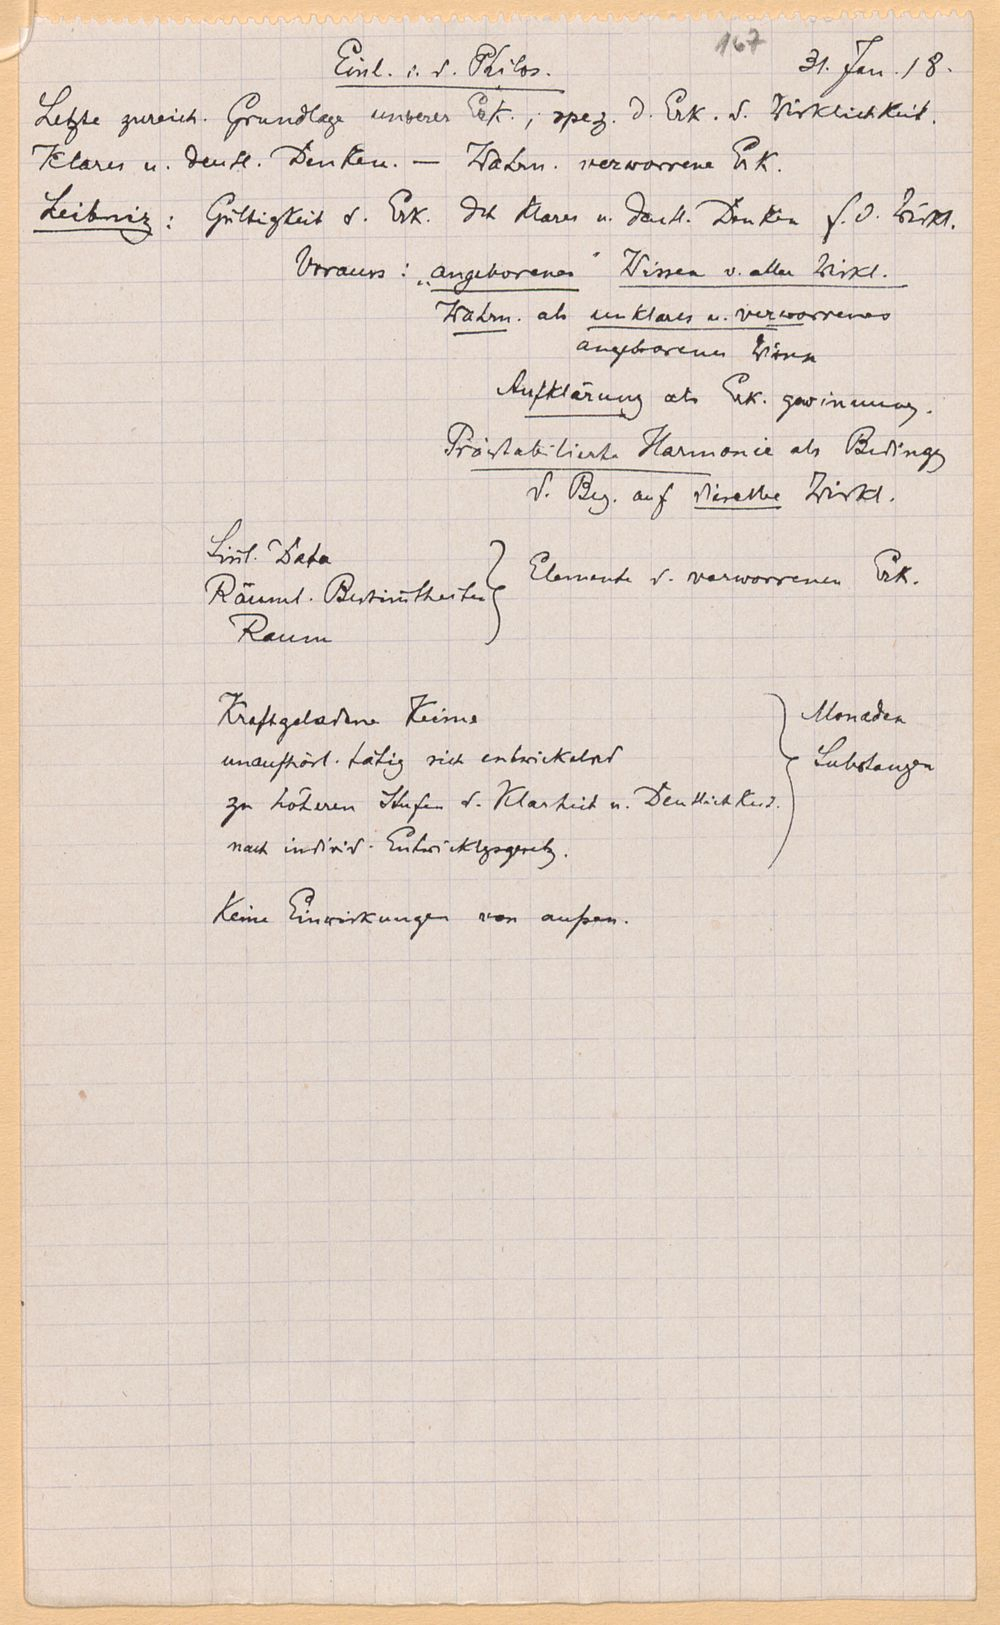 167
Einl. i. d. Philos. 31. Jan. 18.
Letzte zureich. Grundlage unserer Erk., spez. d. Erk. d. Wirklichkeit.
Klares u. deutl. Denken. — Wahrn. verworrene Erk.
Leibniz: Gültigkeit d. Erk. dch klares u. deutl. Denken f. d. Wirkl.
Voraus: „angeborenes“ Wissen v. aller Wirkl.
Wahrn. als unklares u. verworrenes
angeborenes Wissen
Aufklärung als Erk. gewinnung.
Prästabilierte Harmonie als Bedingg
d. Bez. auf dieselbe Wirkl.
Sinl. Data
Räuml. Bestimtheiten } Elemente d. verworrenen Erk.
Raum
Kraftgeladene Keime } Monaden
unaufhörl. tätig sich entwickelnd Substanzen
zu höheren Stufen d. Klarheit u. Deutlichkeit.
nach individ. Entwicklgsgesetz.
Keine Einwirkungen von außen.